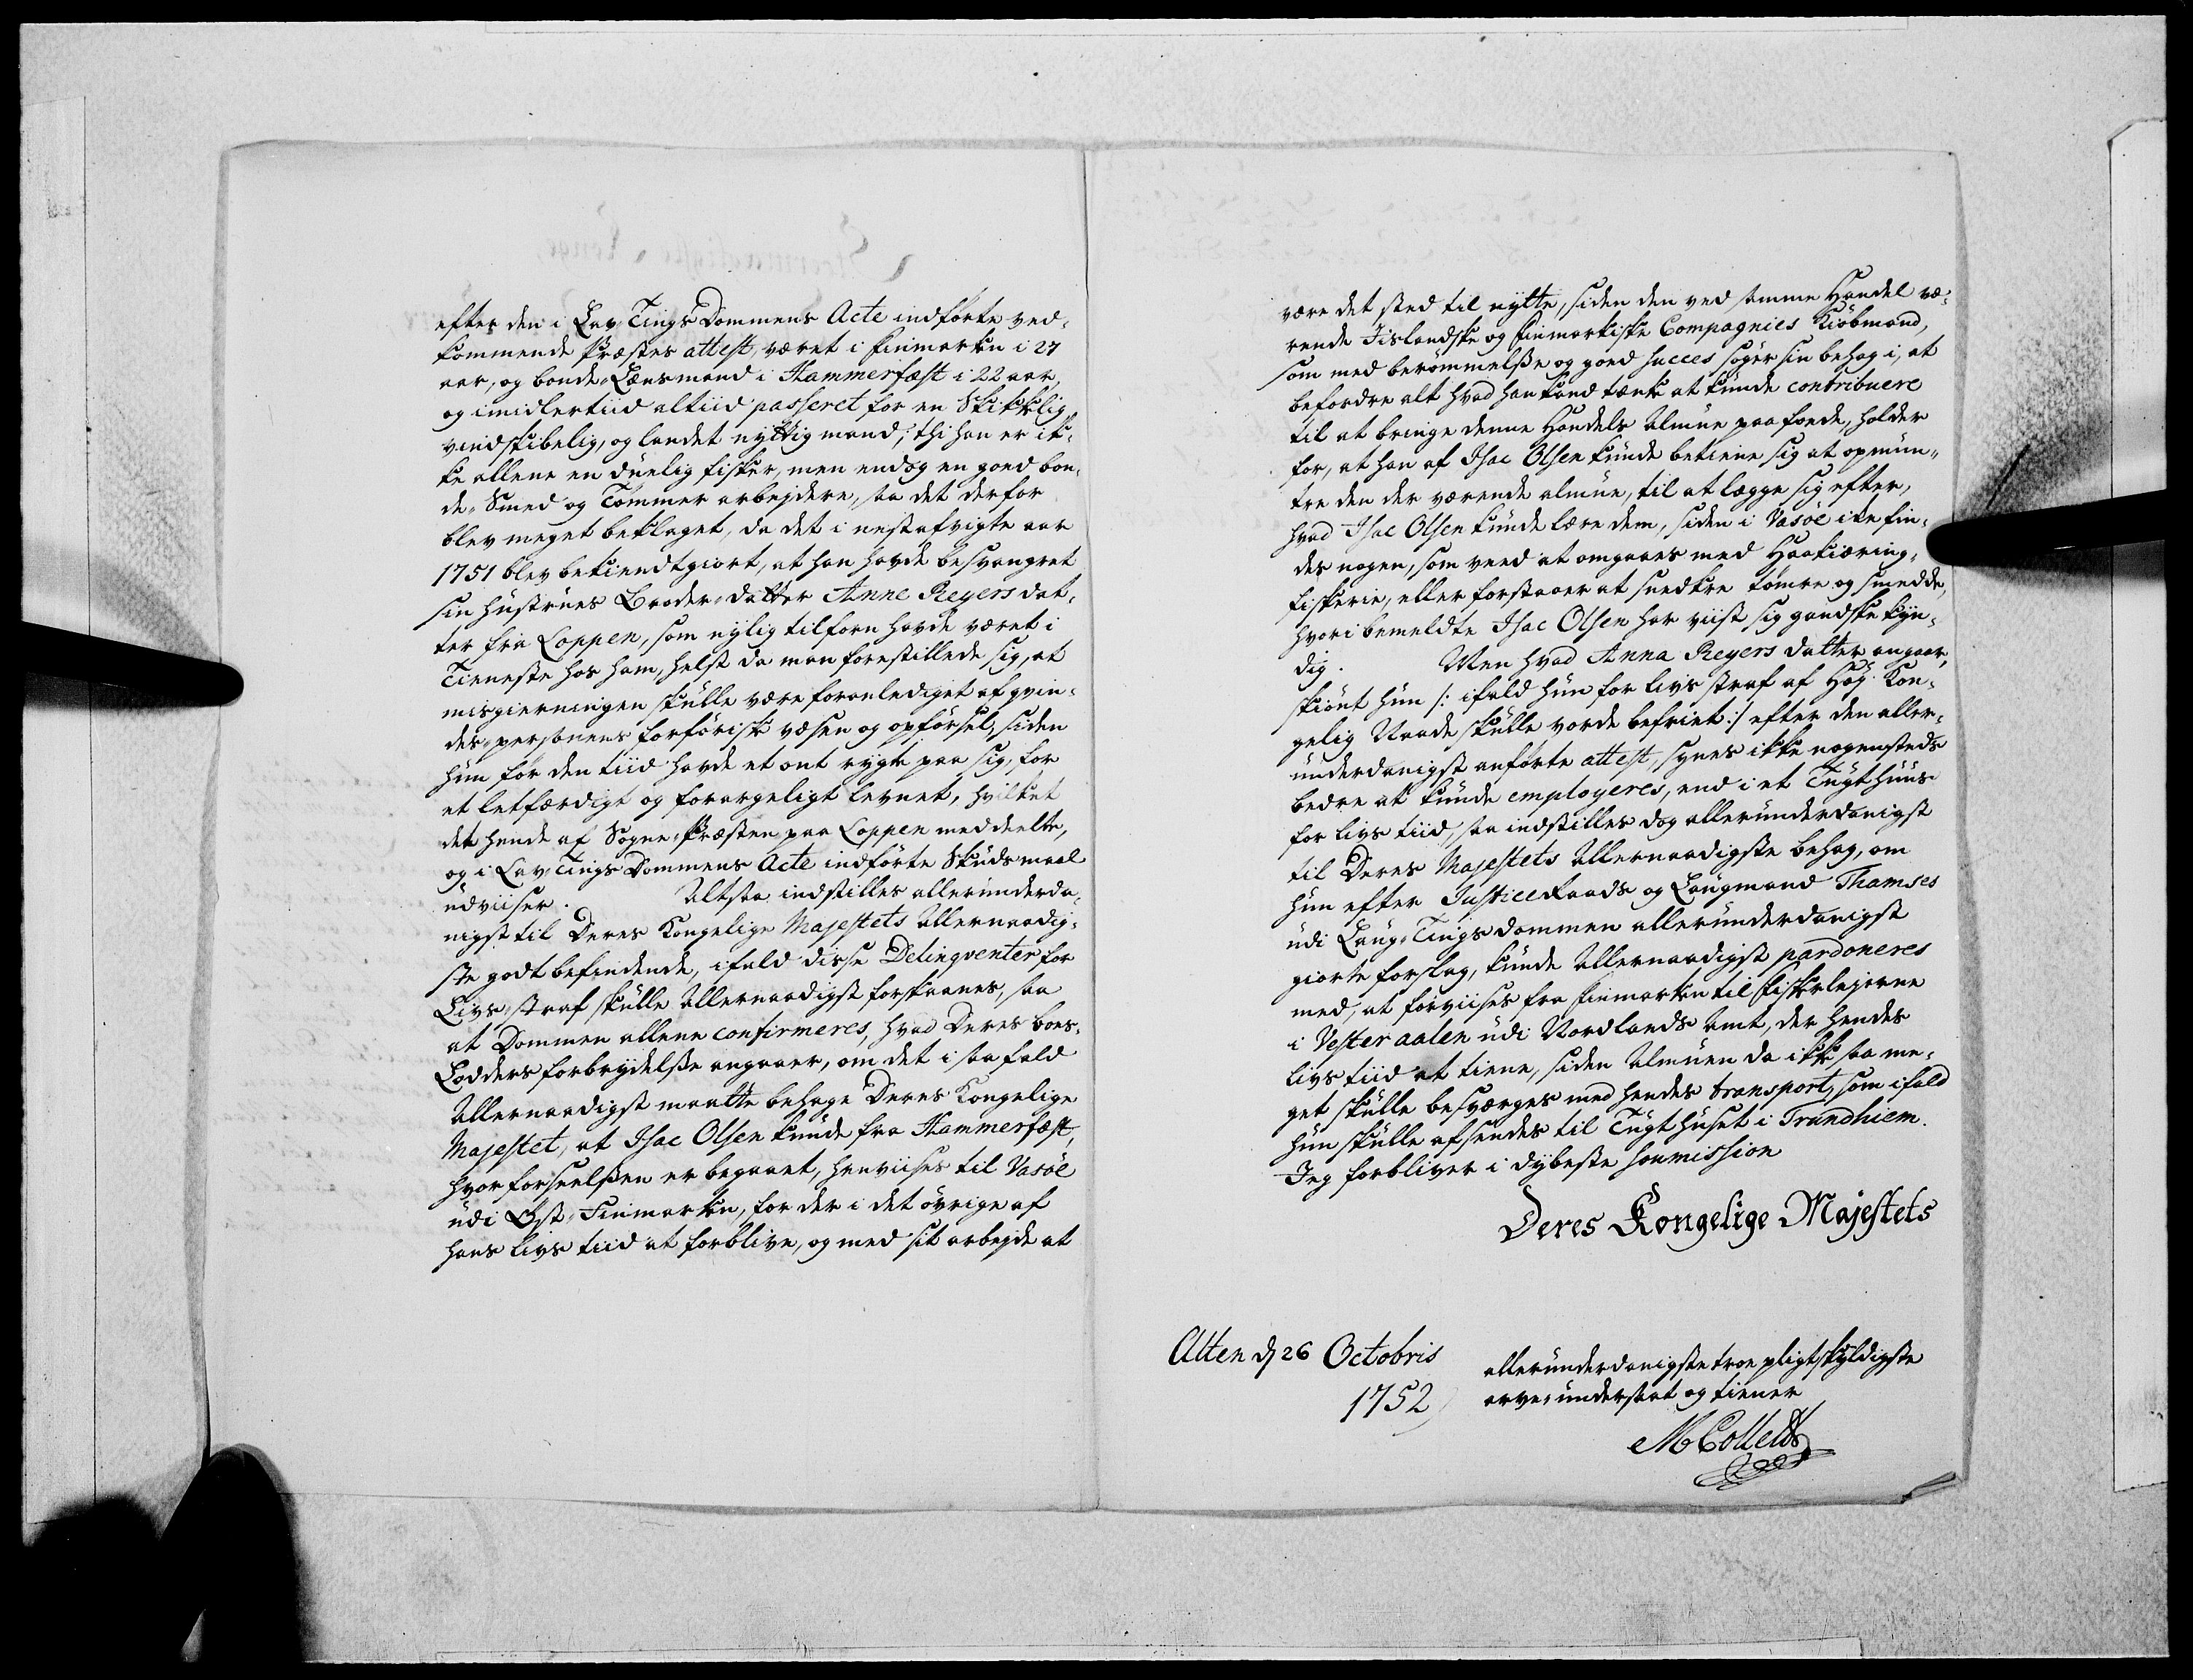 efter den i Lav-Tings Dommens Acte indförte ved-
kommende Præstes attest, været i Finmarken i 27
aar, og bonde-Lænsmand i Hammerfæst i 22 aar,
og imidlertiid altiid passeret for en Skikkelig,
vindskibelig, og landet nyttig mand; thi han er ik-
ke allene en duelig fisker, men endog en goed bon-
de, Smed og Tömmer arbejdere, saa det derfor
blev meget beklaget, da det i nestafvigte aar
1751 blev bekiendtgiort, at han havde besvangret
sin hustrues Broder-datter Anne Reyers dat-
ter fra Loppen, som nylig tilforn havde været i
Tieneste hos ham, helst da man forestillede sig, at
misgierningen skulle være foranlediget af qvin-
des-personens forförisk væsen og opförsel, siden
hun för den tiid havde et ont rygte paa sig, for
et letfærdigt og forargeligt levnet, hvilket
det hende af Sogne-Præsten paa Loppen meddeelte,
og i Lav-Tings Dommens Acte indförte Skudsmaal
udviiser. Altsaa indstilles allerunderda-
nigst til Deres Kongelige Majestets Allernaadig-
ste godtbefindende, ifald disse Delinqventer for
Livs-straf skulle Allernaadigst forskaanes, saa
at Dommen allene confirmeres, hvad Deres boes-
Lodders forbrydelse angaaer, om det i saa fald
Allernaadigst maatte behage Deres Kongelige
Majestet, at Isac Olsen kunde fra Hammerfæst,
hvor forseelsen er begaaet, henviises til Vasöe
udi Öst-Finmarken, for der i det övrige af
hans livs tiid at forblive, og med sit arbejde at
være det sted til nytte, siden den ved samme Handel væ-
rende Iislandske og Finmarkiske Compagnies Kiöbmand,
som med berömmelse og goed succes söger sin behag i, at
befordre alt hvad han kand tænke at kunde contribuere
til at bringe denne Handels Almue paa fode, holder
for, at han af Isac Olsen kunde betiene sig at opmun-
tre den der værende almue, til at lægge sig efter,
hvad Isac Olsen kunde lære dem, siden i Vasöe ikke fin-
des nogen, som veed at omgaaes med Haakiæring-
fiskerie, eller forstaaer at snedkre tömre og smedde,
hvori bemeldte Isac Olsen har viist sig gandske kyn-
dig. Men hvad Anna Reyers datter angaar,
skiönt hun /: ifald hun for livs straf af Höy Kon-
gelig Naade skulle vorde befriet :/ efter den aller-
underdanigst anförte attest, synes ikke nogensteds
bedre at kunde employeres, end i et Tugthuus
for livs tiid, saa indstilles dog allerunderdanigst
til Deres Majestets Allernaadigste behag, om
hun efter Justice Raads og Laugmand Thamses
udi Laug-Tings dommen allerunderdanigst
giorte forslag, kunde Allernaadigst pardoneres
med, at forviises fra Finmarken til Fiskerlejerne
i Vesteraalen udi Nordlands Amt, der hendes
livs tiid at tiene, siden Almuen da ikke saa me-
get skulle besværges med hendes transport, som ifald
hun skulle afsendes til Tugthuset i Trundhiem.
Jeg forbliver i dybeste soumission
Deres Kongelige Majestets
Alten d 26 Octobris
1752
allerunderdanigste troe pligtskyldigste
arve-undersaat og tiener
M Collett